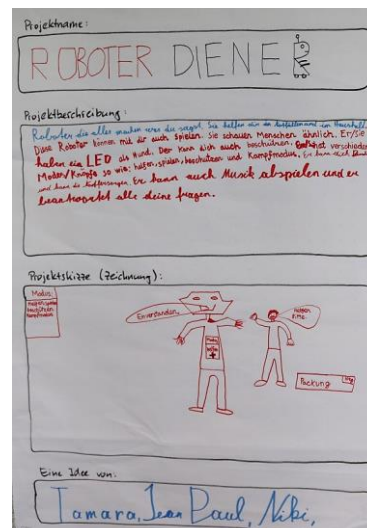 Projektname:
ROBOTER DIENER
Projektbeschreibung:
Roboter die alles machen was du sagst. Sie helfen dir im Haushalt.
Diese Roboter können mit dir auch spielen. Sie schauen Menschen ähnlich. Er/Sie
haben ein LED als Mund. Der kann dich auch beschützen. verschiedene
Moden/Knöpfe so wie: helfen, spielen, beschützen und Kampfmodus. Er kann auch
und kann die Er kann auch Musik abspielen und er
beantwortet alle deine fragen.
Projektskizze (Zeichnung):
Modus:
Einverstanden
Packung
Eine Idee von:
Tamara, Jean Paul, Niki,